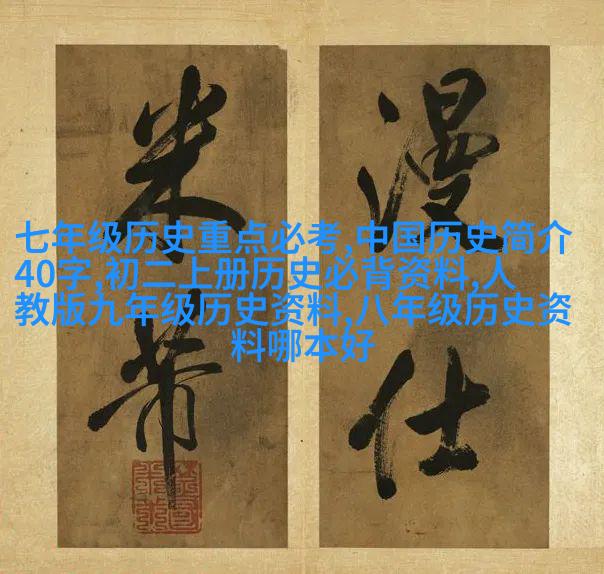 漫仕
米芾
七年级历史重点必考,中国历史简介
40字,初二上册历史必背资料,人
教版九年级历史资料,八年级历史资
料哪本好